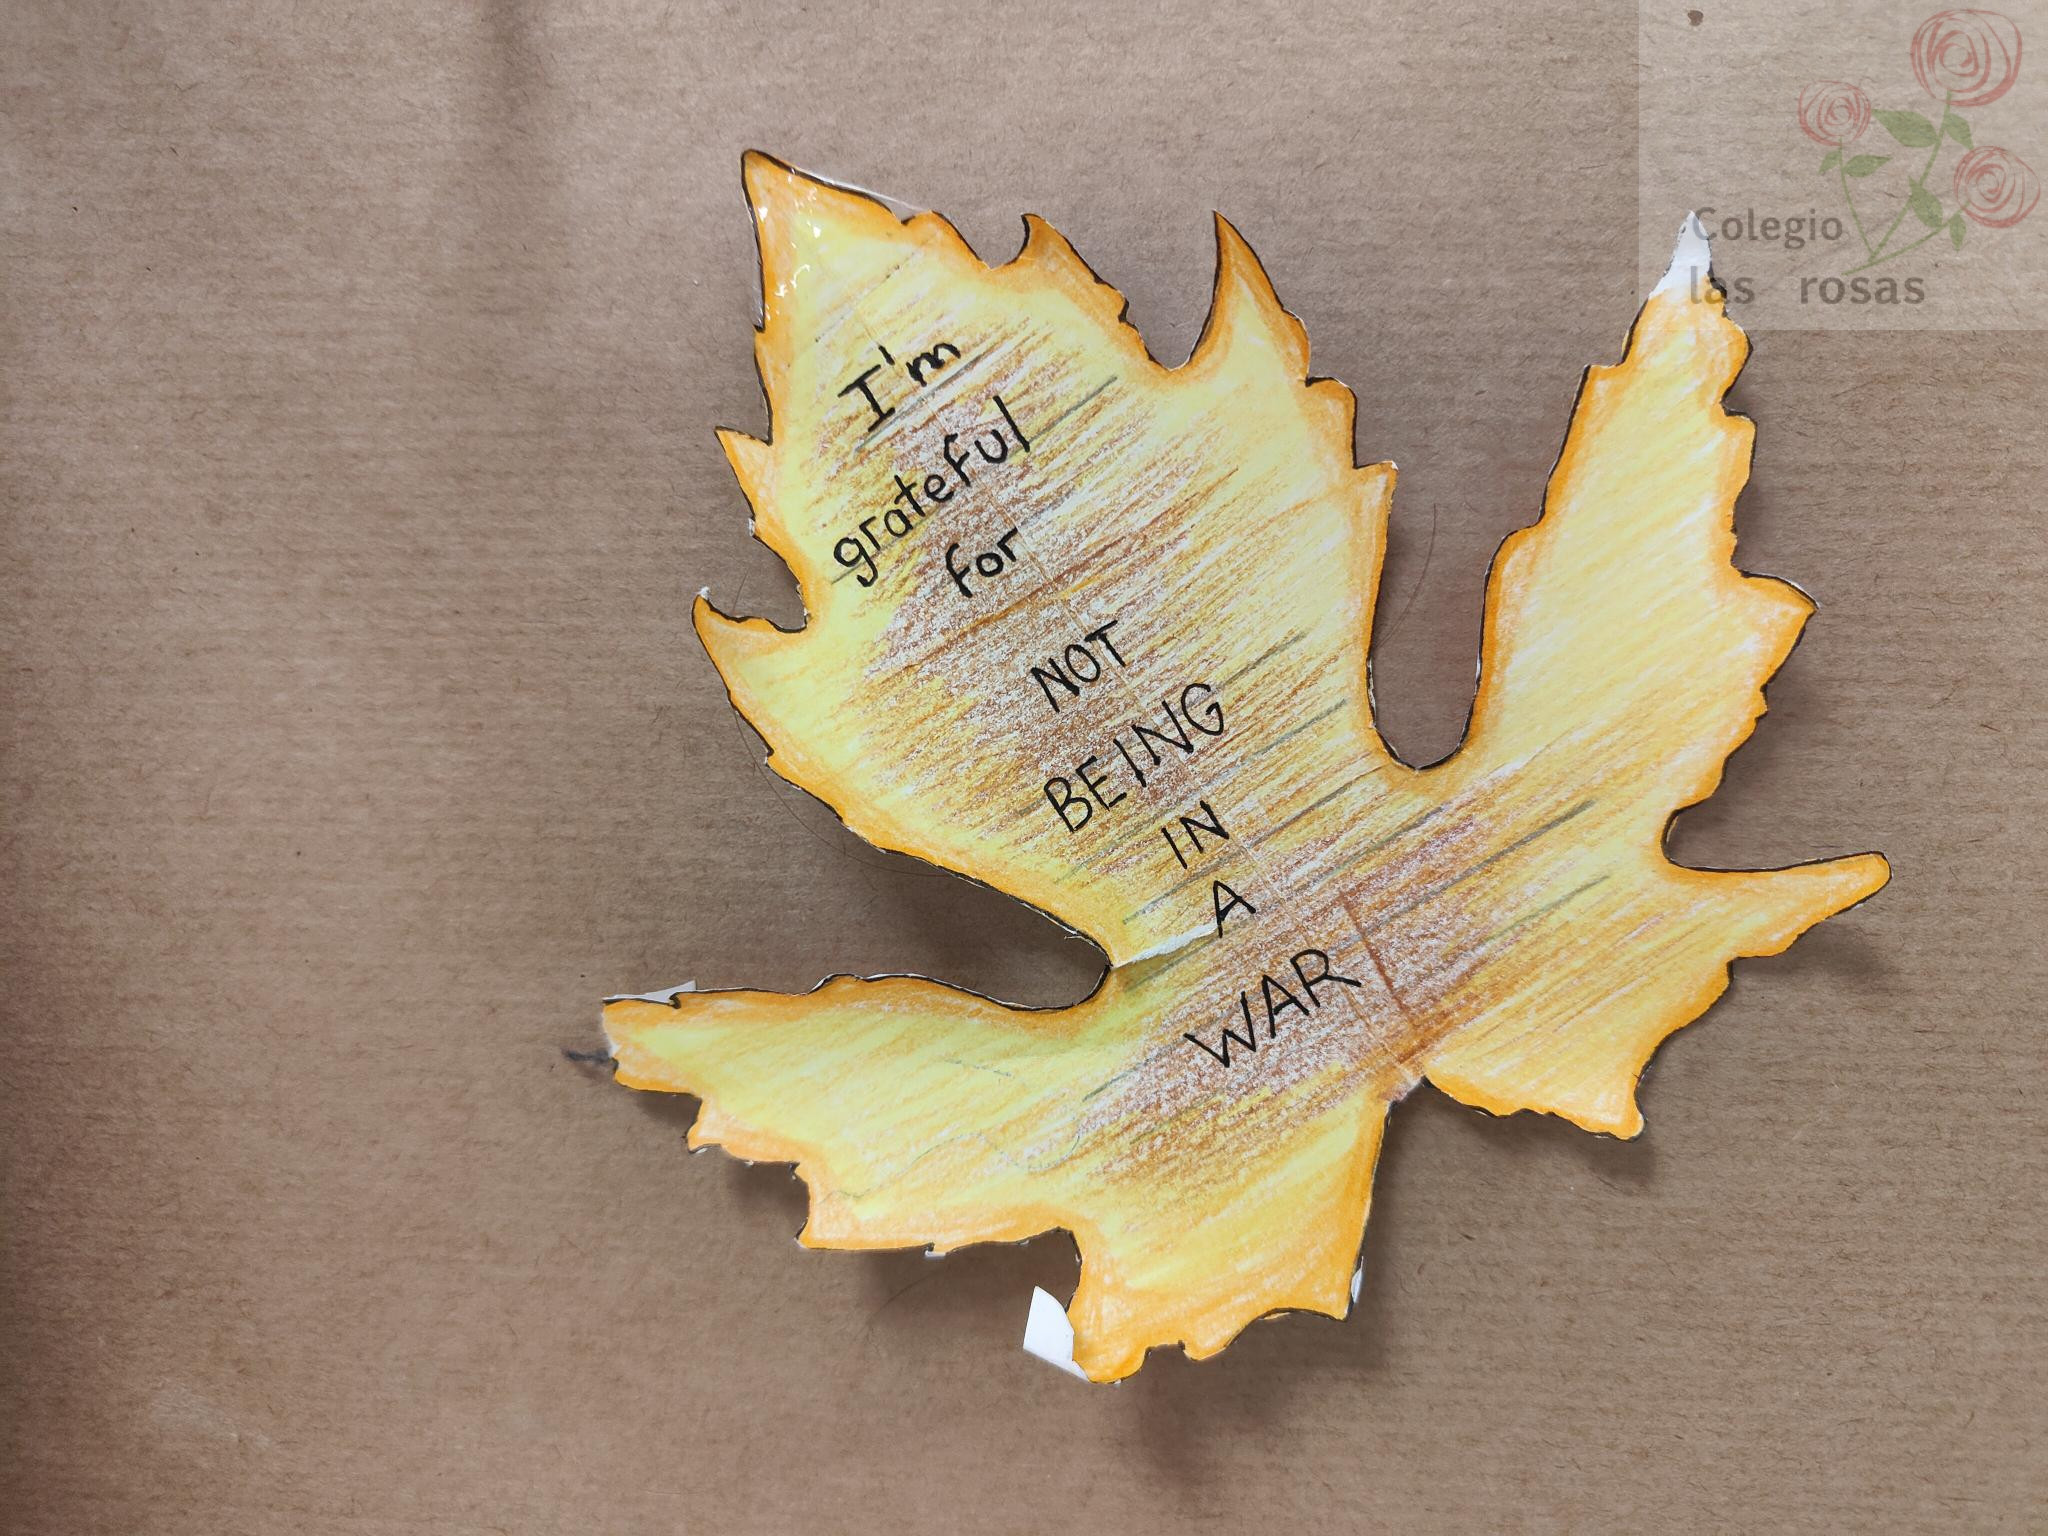 I'm
grateful
for
NOT
BEING
IN
A
WAR
Colegio
las rosas